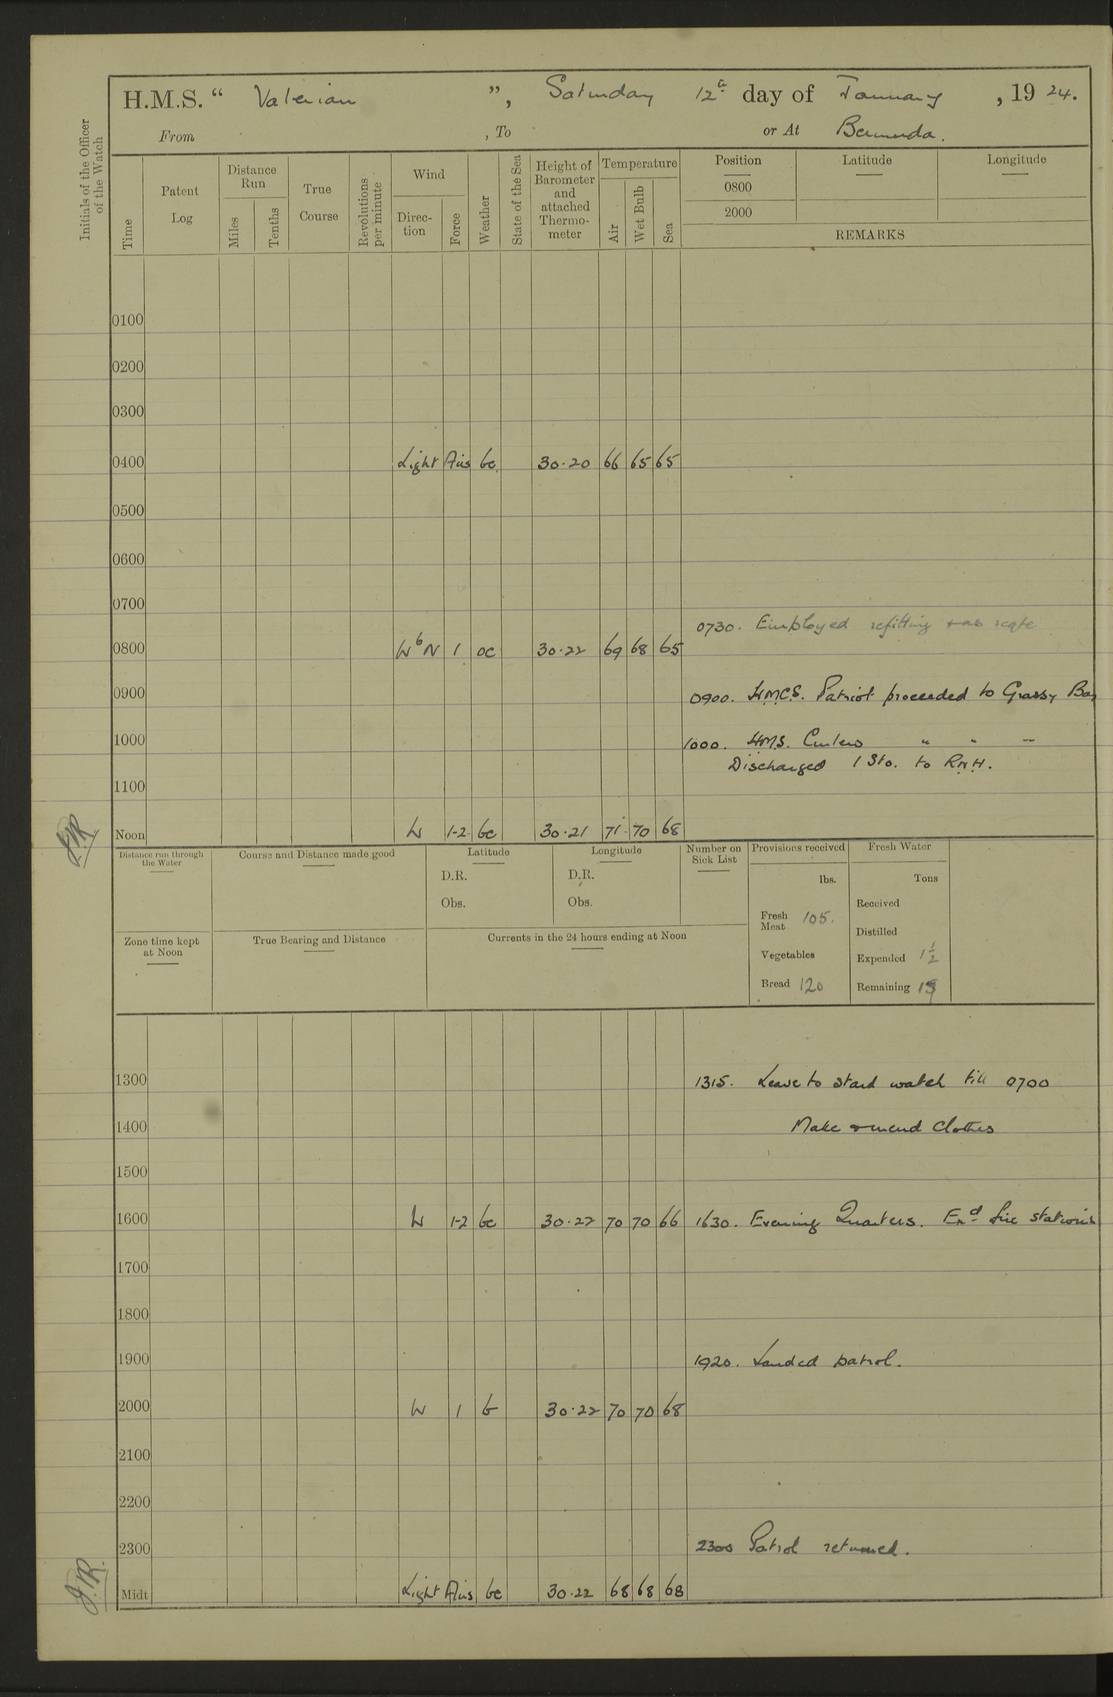 H.M.S. “ Valerian ”, Saturday 12th day of January , 19 24.
From , To or At Bermuda.
Initials of the Officer of the Watch
Time
Patent Log
Distance Run
Miles
Tenths
True Course
Revolutions per minute
Wind
Direction
Force
Weather
State of the Sea
Height of Barometer and attached Thermometer
Temperature
Air
Wet Bulb
Sea
Position Latitude Longitude
0800
2000
REMARKS
0100
0200
0300
0400 Light Airs bc. 30.20 66 65 65
0500
0600
0700
0730. Employed refitting
0800 W b N 1 oc 30.22 69 68 65
0900 0900. H.M.C.S. Patriot proceeded to Grassy Bay
1000 1000. H.M.S. Curlew " " "
Discharged 1 Sto. to R.N.H.
1100
J.R.
Noon W 1-2 bc 30.21 71 70 68
Distance run through the Water
Course and Distance made good
Latitude
D.R.
Obs.
Longitude
D.R.
Obs.
Number on Sick List
Provisions received
lbs.
Fresh Meat 105.
Vegetables
Bread 120
Fresh Water
Tons
Received
Distilled
Expended 1½
Remaining
Zone time kept at Noon
True Bearing and Distance
Currents in the 24 hours ending at Noon
1300 1315. Leave to stard watch till 0700
1400 Make & mend Clothes
1500
1600 W 1-2 bc 30.22 70 70 66 1630. Evening Quarters. Exd fire stations
1700
1800
1900 1920. Landed patrol.
2000 W 1 b 30.22 70 70 68
2100
2200
2300 2300 Patrol returned.
J.R.
Midt Light Airs bc 30.22 68 68 68